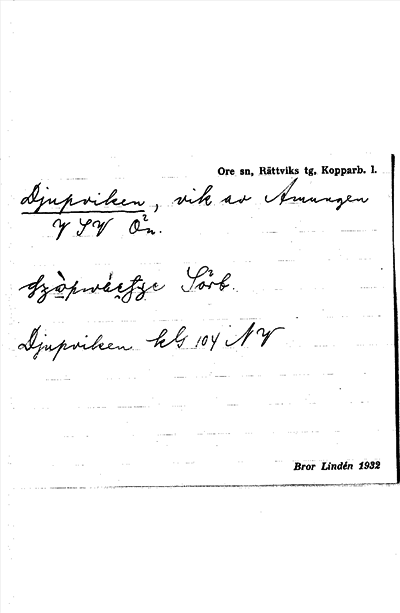 Ore sn, Rättviks tg, Kopparb. l.
Djupviken, vik av Amungen
V S V Ön.
Sörb.
Djupviken kbl 104 NV
Bror Lindén 1932